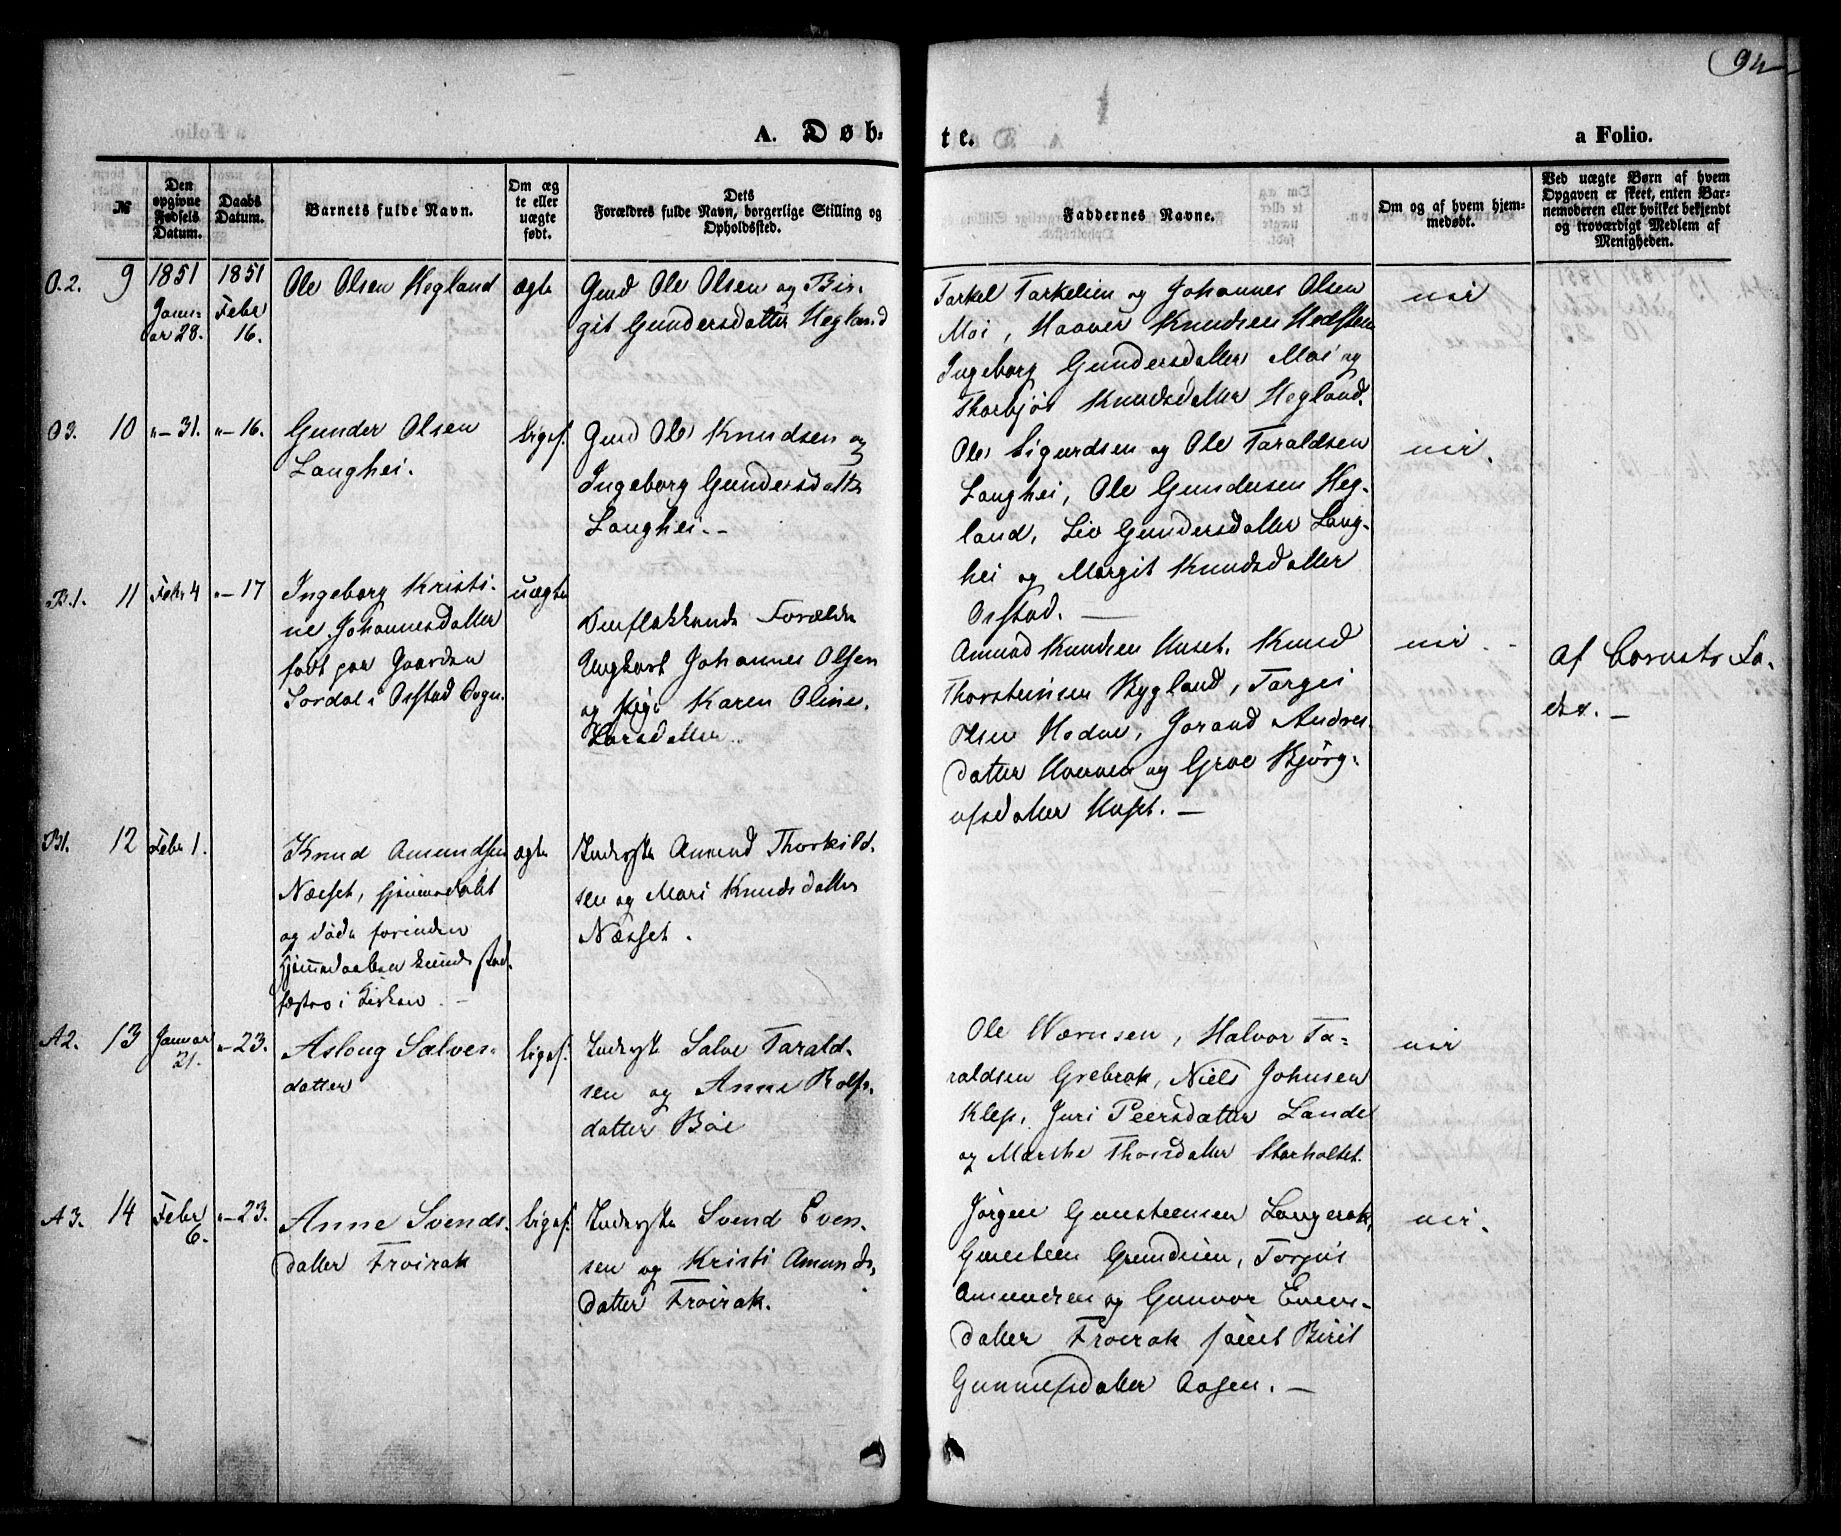 94
A. Døb-
te.
a Folio.
№
Den opgivne Fødsels Datum.
Daabs Datum.
Barnets fulde Navn.
Om ægte eller uægte født.
Dets Forældres fulde Navn, borgerlige Stilling og Opholdssted.
Faddernes Navne.
Om og af hvem hjemmedøbt.
Ved uægte Børn af hvem Opgaven er skeet, enten Barnemoderen eller hvilket bekjendt og troværdigt Medlem af Menigheden.
O.2.
9
1851
Janu-
ar 28.
1851
Febr
16.
Ole Olsen Hegland
ægte
Gmd Ole Olsen og Bir-
git Gundersdatter Hegland
Tarkel Tarkelsen og Johannes Olsen
Moi, Haaver Knudsen
Ingeborg Gundersdatter Moi og
Thorbjør Knudsdatter Hegland.
nei
O3.
10
"–31.
"–16.
Gunder Olsen
Langhei.
liges.
Gmd Ole Knudsen og
Ingeborg Gundersdatter
Langhei.–
Ole Sigurdsen og Ole Taraldsen
Langhei, Ole Gundersen Heg-
land, Liv Gundersdatter Lang-
hei og Margit Knudsdatter
Osstad. —
nei.
B.1.
11
Febr 4
"–17
Ingeborg Kristi-
ne Johannesdatter
født paa Gaarden
Sordal i Osstad Sogn.
uægte
Omflakkende Forældre
Ungkarl Johannes Olsen
og Pige Karen Oline
Larsdatter.
Amund Knudsen Uset. Knud
Thorsteinsen Bygland, Targei
Olsen Hodne, Jorand Andres-
datter og Groe Bjørg-
ufsdatter Uset. —
nei.
Af Barnets Fa-
der. —
B1.
12
Febr 1.
Knud Amundsen
Næsset, hjemmedøbt
og døde forinden
Hjemmedaaben kunde stad-
fæstes i Kirken.
ægte
Inderste Amund Thorkild-
sen og Mari Knudsdatter
Næsset.
A2.
13
Januar
21.
"–23.
Aslong Salves-
datter
liges.
Inderste Salve Tarald-
sen og Anne Rolfs-
datter Bøe
Ole Wærnsen, Halvor Ta-
raldsen Grebrok, Niels Johnsen
Klep, Juri Peersdatter Lande
og Marthe Thorsdatter Storholtet.
nei
A3.
14
Febr
6.
"–23.
Anne Svends-
datter Frøirak
ligef.
Inderste Svend Even-
sen og Kristi Amunds-
datter Frøirak.
Jørgen Gunsteensen Langerak,
Gunsteen Gundersen, Torjus
Amundsen og Gunvor Evens-
datter Frøirak samt Birit
Gunnufsdatter Aasen. —
nei.